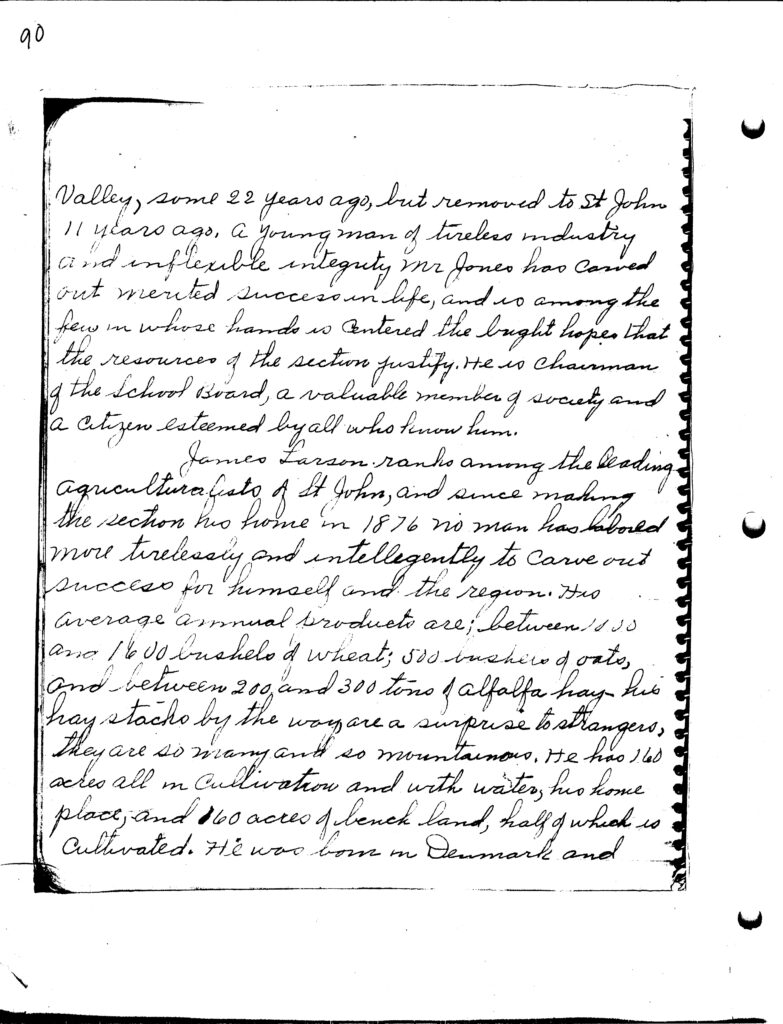 90
Valley, some 22 years ago, but removed to St John
11 years ago. A young man of tireless industry
and inflexible integrity Mr Jones has carved
out merited success in life, and is among the
few in whose hands is centered the bright hopes that
the resources of the section justify. He is Chairman
of the School Board, a valuable member of society and
a citizen esteemed by all who know him.
James Larson ranks among the leading
agriculturalists of St John, and since making
the section his home in 1876 no man has labored
more tirelessly and intellegently to carve out
success for himself and the region. His
average annual products are; between
and 1600 bushels of wheat; 500 bushels of oats,
and between 200 and 300 tons of alfalfa hay - his
hay stacks by the way are a surprise to strangers,
they are so many and so mountainous. He has 160
acres all in cultivation and with water, his home
place, and 160 acres of bench land, half of which is
cultivated. He was born in Denmark and